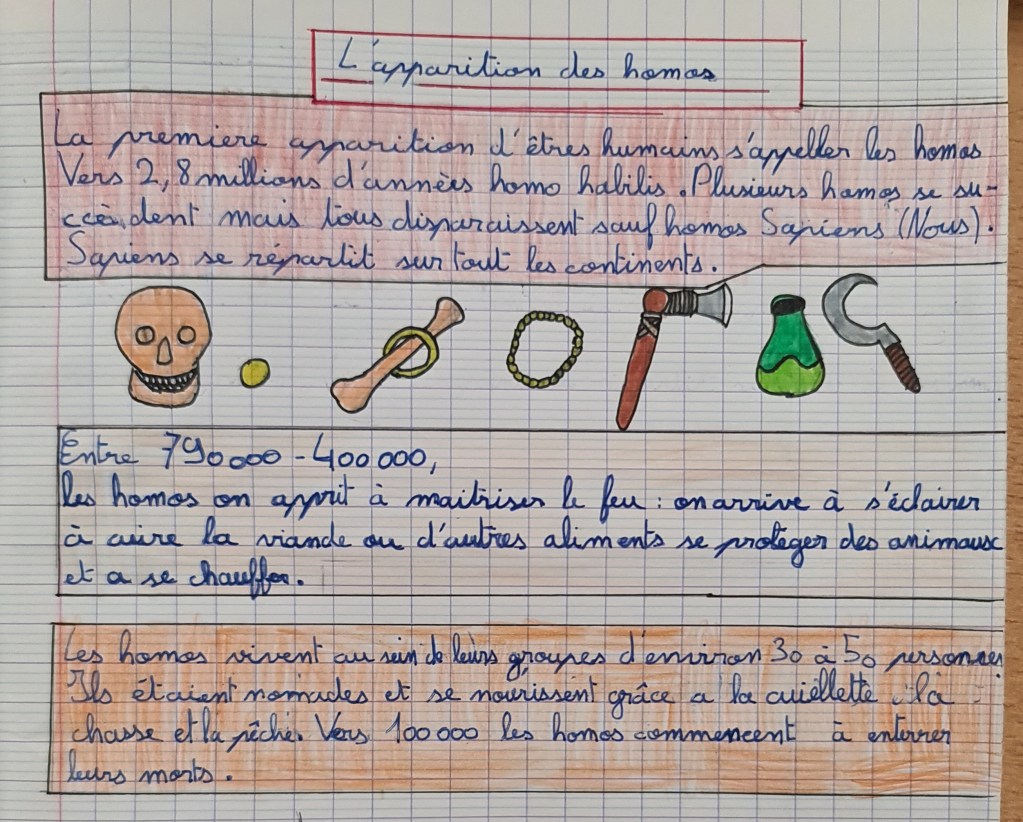 L'apparition des homos
La premiere apparition d'êtres humains s'appeller les homos
Vers 2,8 millions d'années homo habilis. Plusieurs homos se su-
ccèdent mais tous disparaissent sauf homos Sapiens (Nous).
Sapiens se répartit sur tout les continents.
Entre 790 000 - 400 000,
les homos on apprit à maitriser le feu : on arrive à s'éclairer
à cuire la viande ou d'autres aliments se proteger des animaux
et a se chauffer.
Les homos vivent au sein de leurs groupes d'environ 30 à 50 personnes
Ils étaient nomades et se nourissent grâce a la cuiellette, la
chasse et la pêche. Vers 100 000 les homos commencent à enterrer
leurs morts.